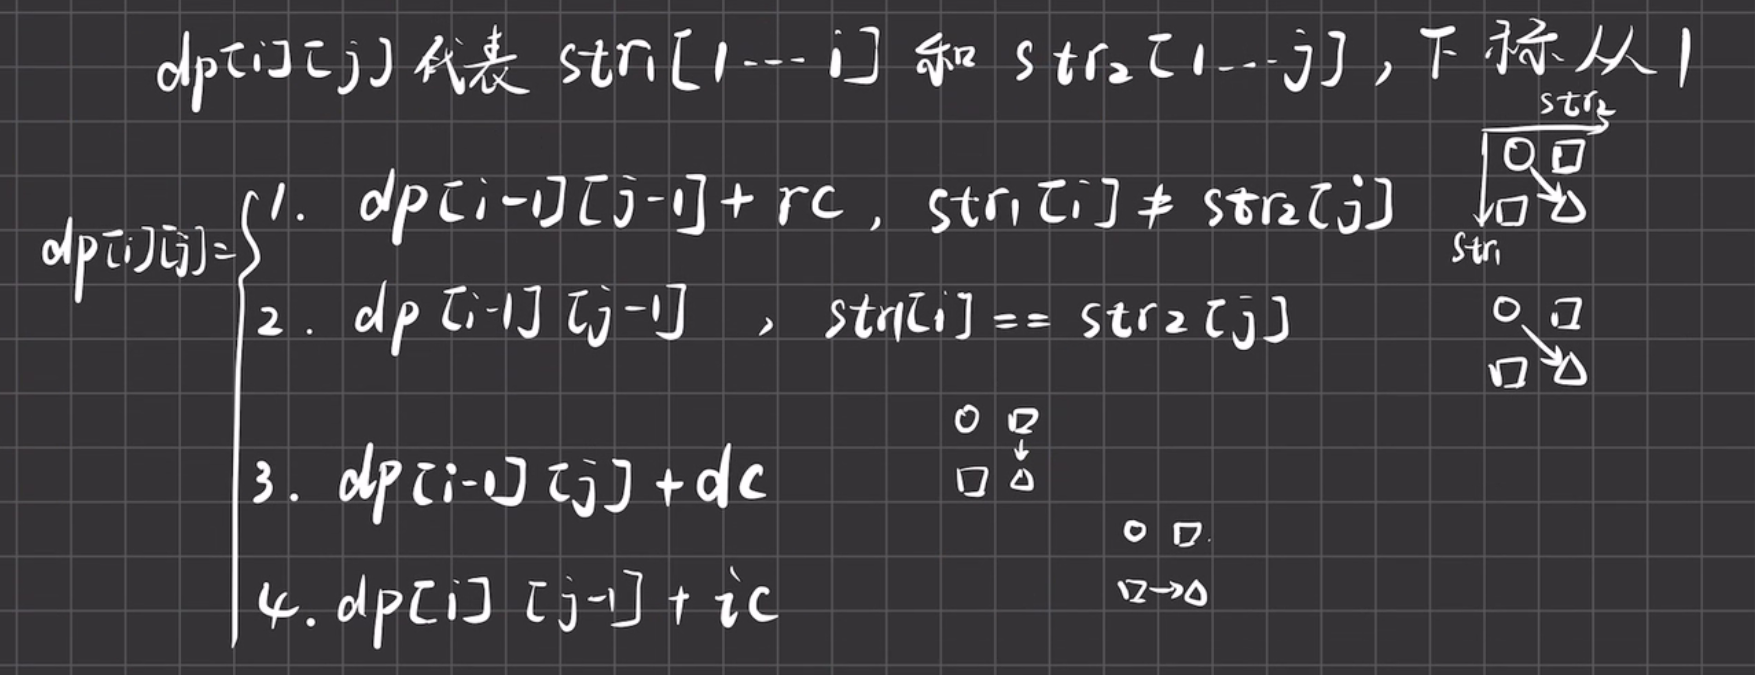 dp[i][j] 代表 str1[1---i] 和 str2[1---j], 下标从1
str2
dp[i][j]=
1. dp[i-1][j-1]+rc, str1[i] ≠ str2[j]
str1
2. dp[i-1][j-1] , str1[i] == str2[j]
3. dp[i-1][j]+dc
4. dp[i][j-1]+ic